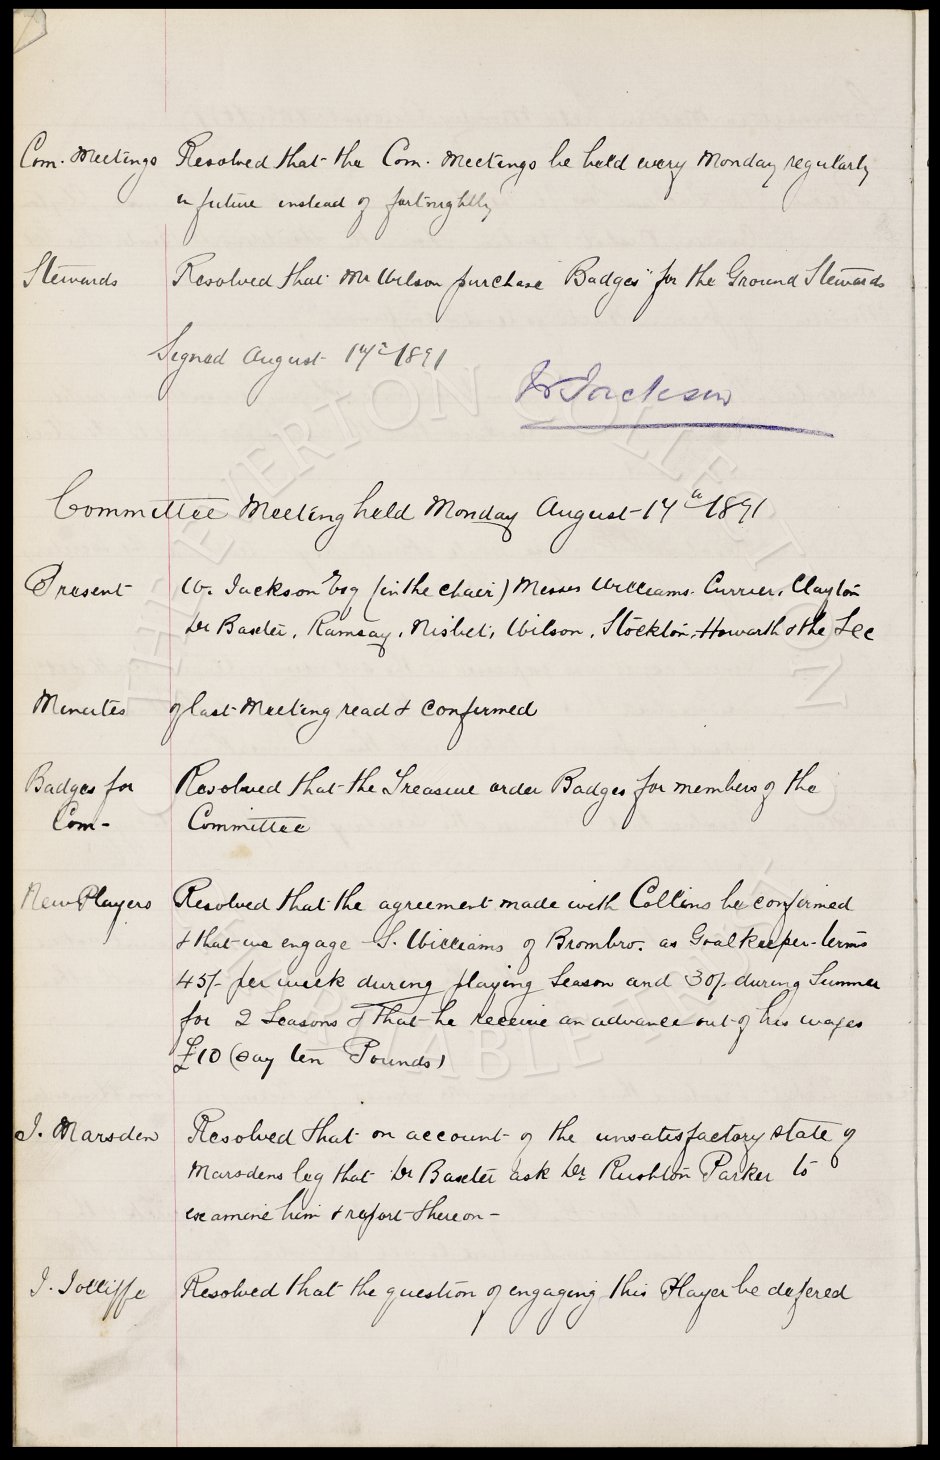 Com. Meetings Resolved that the Com. Meetings be held every Monday regularly
in future instead of fortnightly
Stewards Resolved that Mr Wilson purchase "Badges" for the Ground Stewards
Signed August 17th 1891
W Jackson
Committee Meeting held Monday August 17th 1891
Present W. Jackson Esq (in the chair) Messrs Williams. Currier, Clayton
Dr Baxter, Ramsay, Nisbet, Wilson, Stockton, Howarth & the Sec
Minutes of last Meeting read & confirmed
Badges for Resolved that the Treasurer order Badges for members of the
Com- Committee
New Players Resolved that the agreement made with Collins be confirmed
& that we engage S. Williams of Brombro. as Goalkeeper. terms
45/- per week during playing Season and 30/- during Summer
for 2 Seasons & that he receive an advance out of his wages
£10 (say ten Pounds)
J. Marsden Resolved that on account of the unsatisfactory state of
Marsdens leg that Dr Baxter ask Dr Rushton Parker to
examine him & report thereon -
J. Jolliffe Resolved that the question of engaging this Player be defered
THE EVERTON COLLECTION
CHARITABLE TRUST